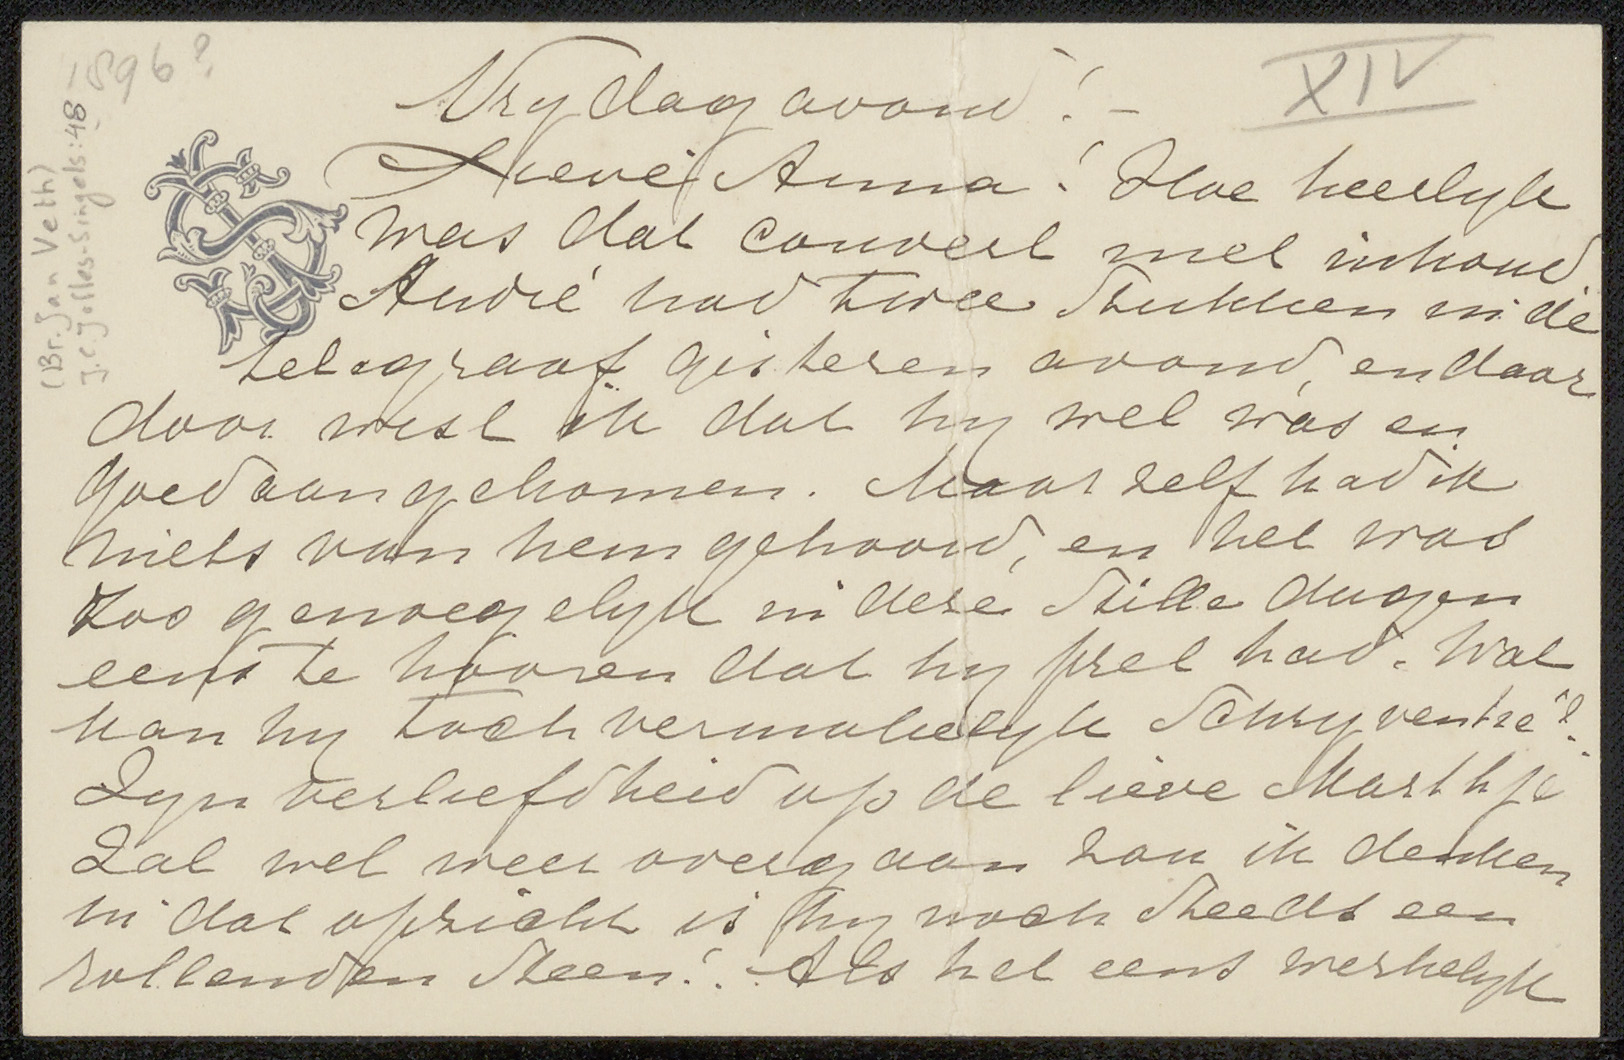 1896?
XIV
(Br. Jan Veth)
J.C. Jolles-Singels: 48
Vrydag avond! –
Lieve Anna! Hoe heerlyk
was dat couvert met inhoud
André had twee stukken in de
telegraaf gisteren avond, en daar
door wist ik dat hy wel was en
goed aangekomen. Maar zelf had ik
niets van hem gehoord, en het was
zoo genoegelyk in deze stille dagen
eens te hooren dat hy pret had. Wat
kan hy toch vermakelyk schryven hè?
Zyn verliefdheid op de lieve Marthje
zal wel weer overgaan zou ik denken
in dat opzicht is hy noch steeds een
rollenden steen! Als het eens werkelyk